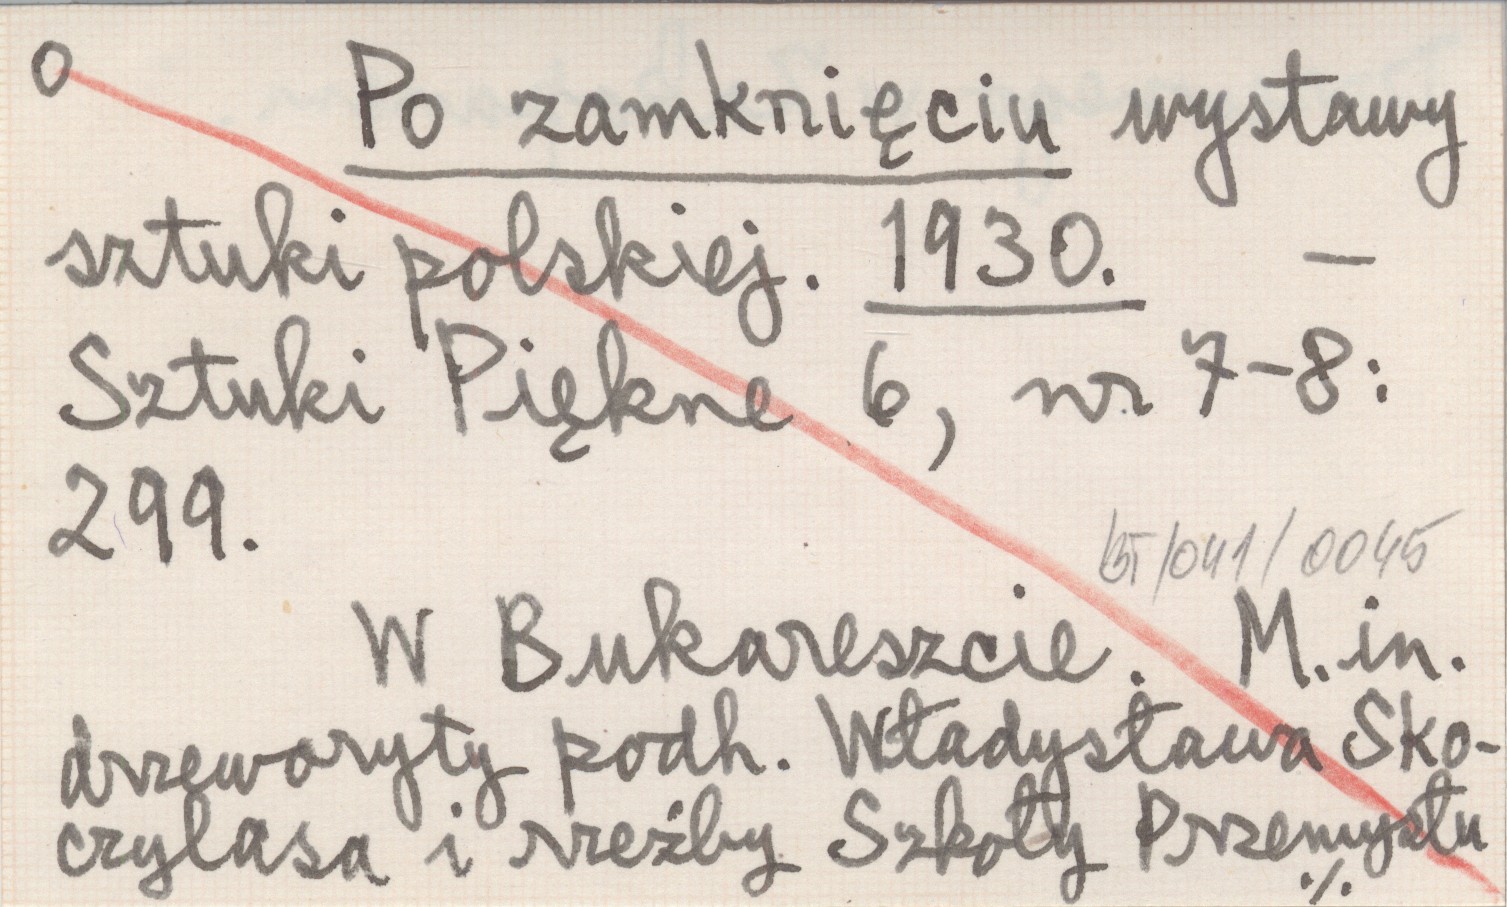 O Po zamknięciu wystawy
sztuki polskiej. 1930. —
Sztuki Piękne 6, nr 7-8:
299.
BT/041/0045
W Bukareszcie. M.in.
drzeworyty podh. Władysława Sko-
czylasa i rzeźby Szkoły Przemysłu
./.